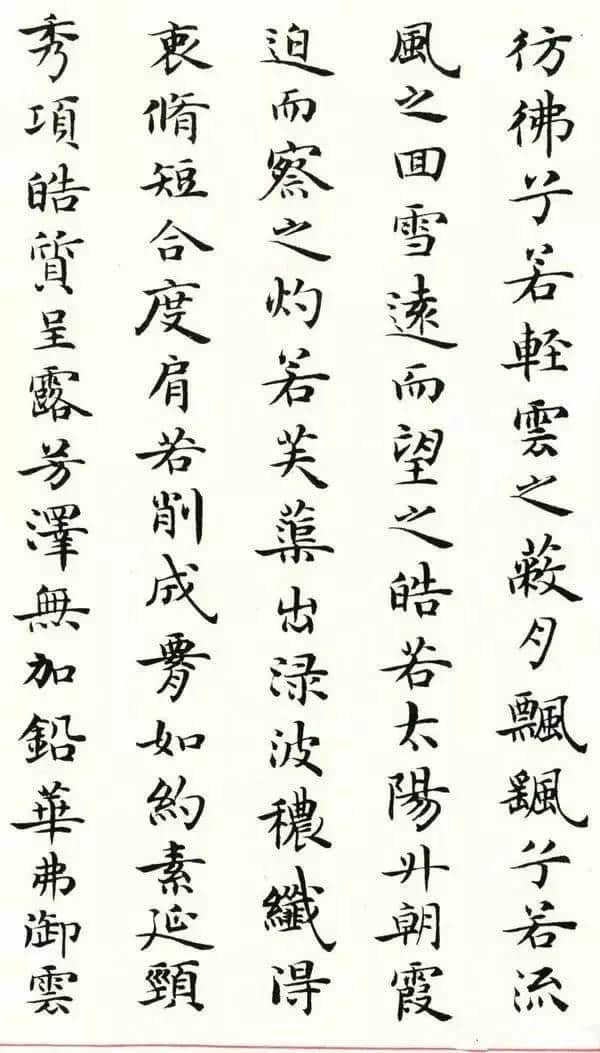 彷彿兮若輕雲之蔽月飄颻兮若流
風之回雪遠而望之皓若太陽升朝霞
迫而察之灼若芙蕖出淥波穠纖得
衷脩短合度肩若削成腰如約素延頸
秀項皓質呈露芳澤無加鉛華弗御雲